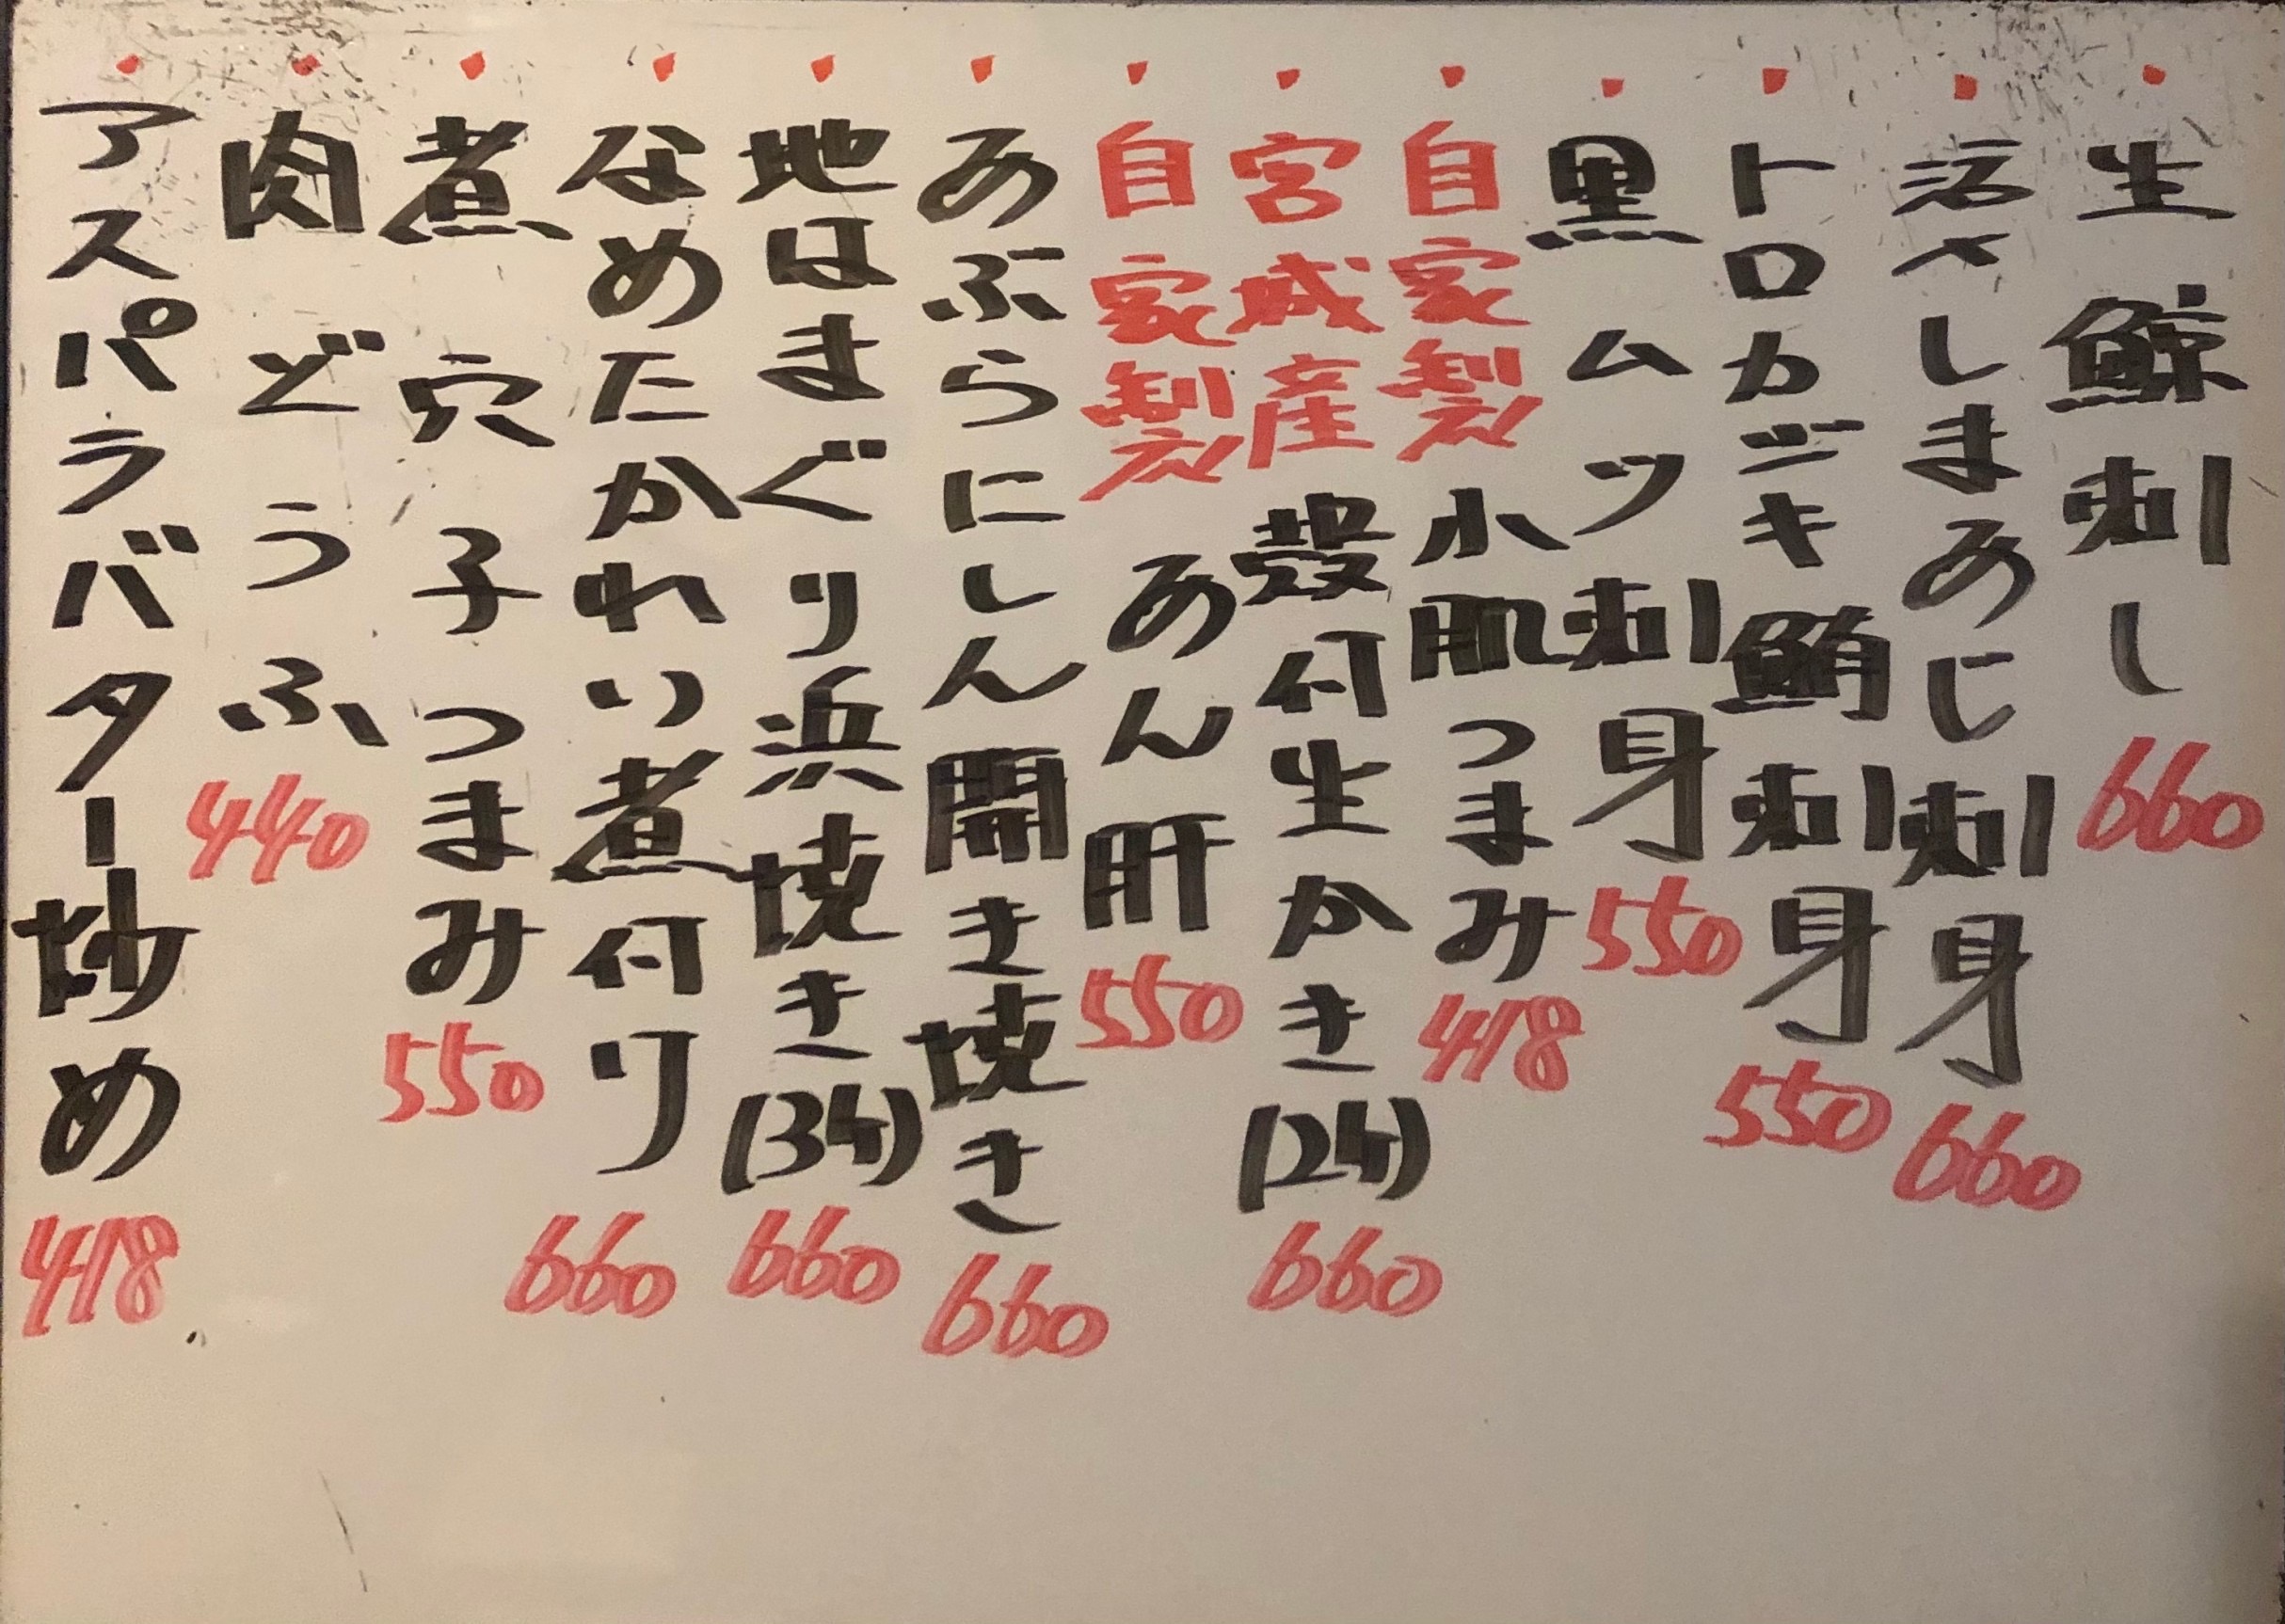 ・生鯨刺し 660
・活〆しまあじ刺身 660
・トロカジキ鮪刺身 550
・黒ムツ刺身 550
・自家製 小肌つまみ 418
・宮城産 殻付生かき(2ヶ) 660
・自家製 あん肝 550
・あぶらにしん開き焼き 660
・地はまぐり浜焼き(3ヶ) 660
・なめたかれい煮付け 660
・煮穴子つまみ 550
・肉どうふ 440
・アスパラバター炒め 418